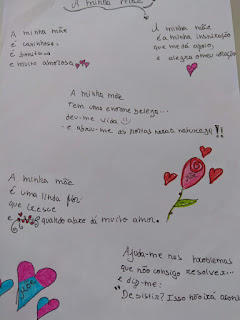 A minha mãe
A minha mãe
é carinhosa,
é bonita
e muito amorosa.
A minha mãe
é a minha inspiração
que me dá apoio
e alegra o meu coração
A minha mãe
Tem uma enorme beleza...
deu-me vida
e abriu-me as portas nesta natureza!!
A minha mãe
é uma linda flor
que cresce
e quando abre dá muito amor.
Ajuda-me nos problemas
que não consigo resolver...
e diz-me:
"Desistir? Isso não irá